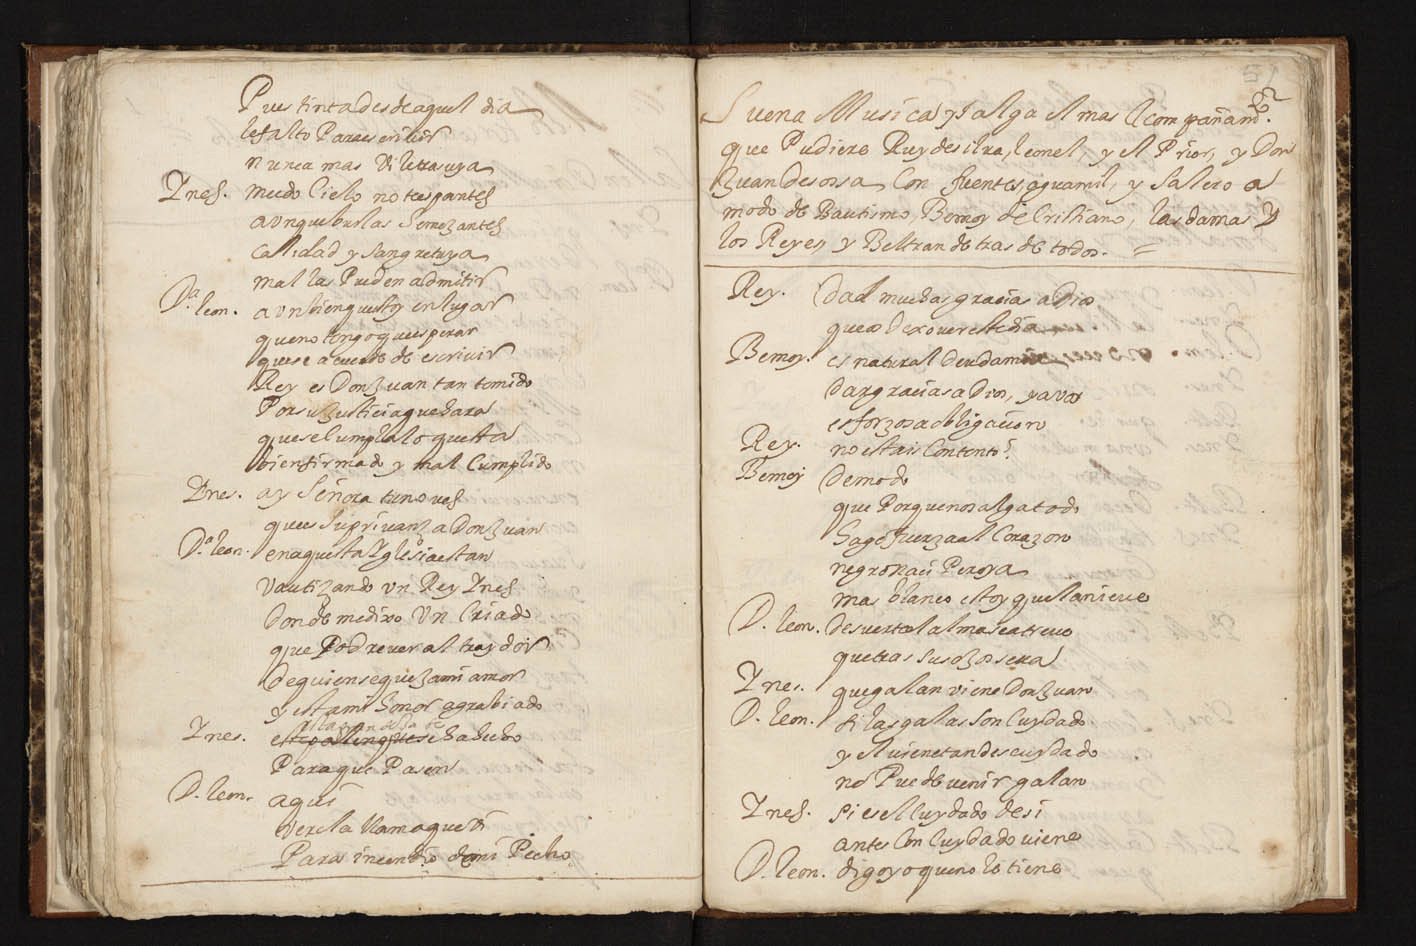 Pues tinta desde aquel dia
le falto Para escriuir
nunca mas Vi letra suya
Ynes. miedo Cielo no te espantes
aunque burlas Semejantes
Calidad y Sangre tuya
mal las Pueden admitir
D.ª leon. aun bien que estoy en lugar
que no tengo que esperar
que se acuerde de escriuir
Rey es Don Juan tan temido
Por su Justicia que hara
que se Cumpla lo que esta
bien firmado y mal Cumplido
Ynes. ay Señora tu no ves
que es Su priuanza Don Juan
D.ª leon. en aquesta Yglesia estan
Vautizando Un Rey Ynes
Donde me dixo Un Criado
que Podre ver al traydor
de quien se queja mi amor
y esta mi honor agrabiado
Ynes. este palenque se ha hecho
Para que Pasen
D. leon. aqui
vere la llama que di
Para incendio de mi Pecho
51
Suena Musica y Salga el mas Acompañam.º
que Pudiere Ruy de silua, leonel y el Prior, y Don
Juan de sosa Con fuentes, aguamil, y Salero a
modo de Bautismo, Bemoy de Cristiano, las damas y
los Reyes, y Beltran detras de todos. =
Rey. Dad muchas gracias a Dios
que os Dexo ver este dia
Bemoy. es natural deuda mia
Dar gracias a Dios, ya vos
es forzosa obligacion
Rey. no estais Contento?
Bemoy De modo
que Porque no salga todo
Hago fuerza al Corazon
negro naci Pero ya
mas blanco estoy que la nieue
D. leon. de suerte el alma se atreue
que tras Sus ojos se va
Ynes. que galan viene Don Juan
D. leon. Si las galas Son Cuydado
y el viene tan descuydado
no Puede venir galan
Ynes. Si es el Cuydado de si
antes Con Cuydado viene
D. leon. digo yo que no le tiene